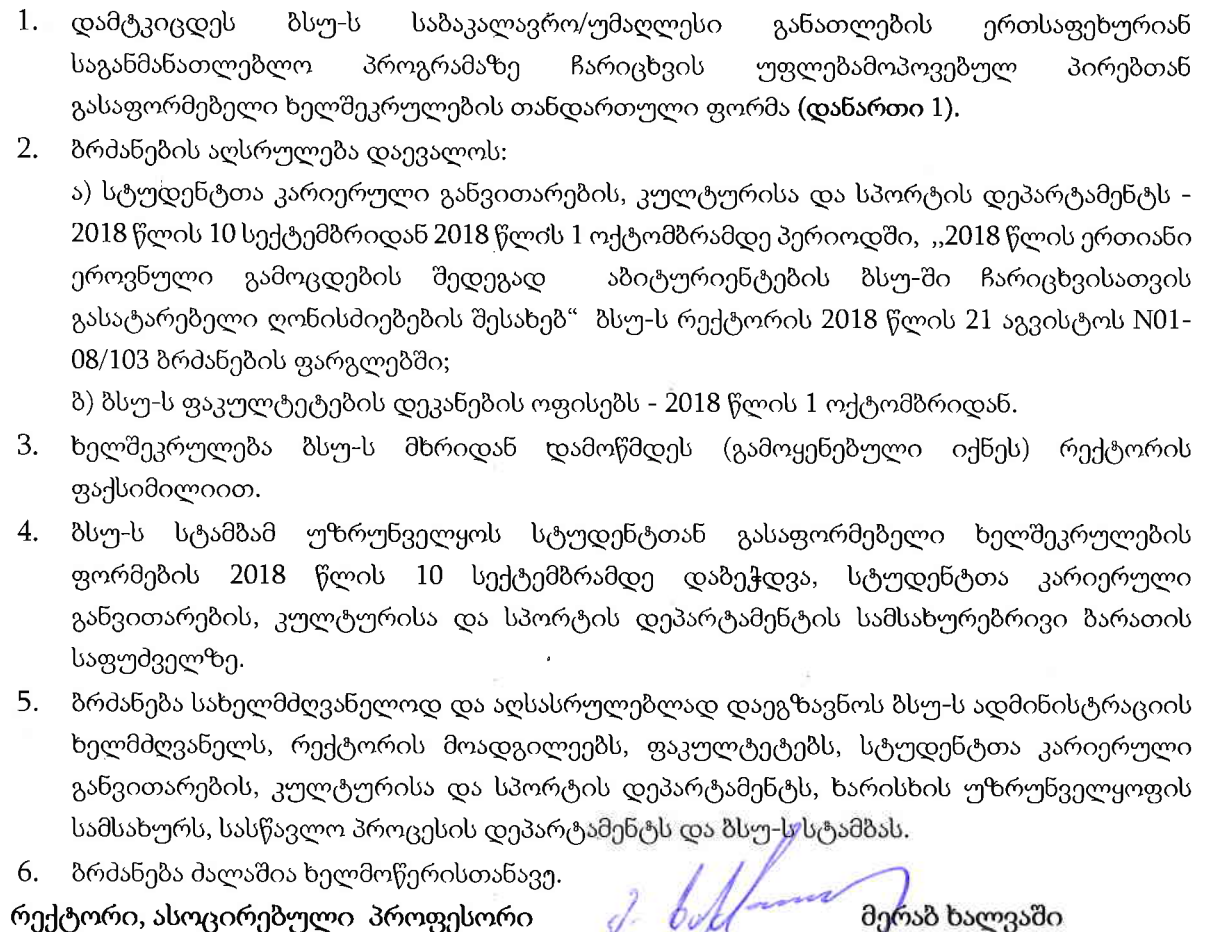 1. დამტკიცდეს ბსუ-ს საბაკალავრო/უმაღლესი განათლების ერთსაფეხურიან
საგანმანათლებლო პროგრამაზე ჩარიცხვის უფლებამოპოვებულ პირებთან
გასაფორმებელი ხელშეკრულების თანდართული ფორმა (დანართი 1).
2. ბრძანების აღსრულება დაევალოს:
ა) სტუდენტთა კარიერული განვითარების, კულტურისა და სპორტის დეპარტამენტს -
2018 წლის 10 სექტემბრიდან 2018 წლის 1 ოქტომბრამდე პერიოდში, ,,2018 წლის ერთიანი
ეროვნული გამოცდების შედეგად აბიტურიენტების ბსუ-ში ჩარიცხვისათვის
გასატარებელი ღონისძიებების შესახებ“ ბსუ-ს რექტორის 2018 წლის 21 აგვისტოს N01-
08/103 ბრძანების ფარგლებში;
ბ) ბსუ-ს ფაკულტეტების დეკანების ოფისებს - 2018 წლის 1 ოქტომბრიდან.
3. ხელშეკრულება ბსუ-ს მხრიდან დამოწმდეს (გამოყენებული იქნეს) რექტორის
ფაქსიმილიით.
4. ბსუ-ს სტამბამ უზრუნველყოს სტუდენტთან გასაფორმებელი ხელშეკრულების
ფორმების 2018 წლის 10 სექტემბრამდე დაბეჭდვა, სტუდენტთა კარიერული
განვითარების, კულტურისა და სპორტის დეპარტამენტის სამსახურებრივი ბარათის
საფუძველზე.
5. ბრძანება სახელმძღვანელოდ და აღსასრულებლად დაეგზავნოს ბსუ-ს ადმინისტრაციის
ხელმძღვანელს, რექტორის მოადგილეებს, ფაკულტეტებს, სტუდენტთა კარიერული
განვითარების, კულტურისა და სპორტის დეპარტამენტს, ხარისხის უზრუნველყოფის
სამსახურს, სასწავლო პროცესის დეპარტამენტს და ბსუ-ს სტამბას.
6. ბრძანება ძალაშია ხელმოწერისთანავე.
რექტორი, ასოცირებული პროფესორი მერაბ ხალვაში